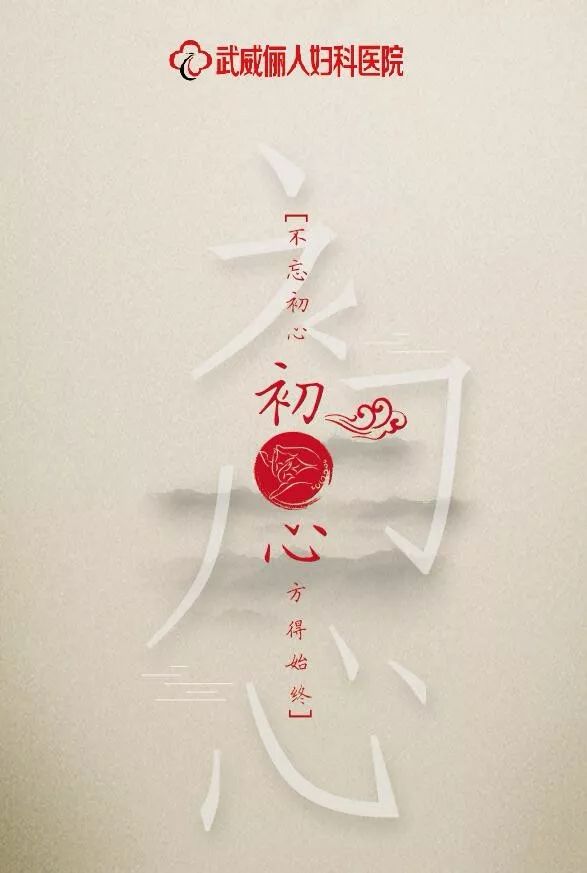 武威俪人妇科医院
初心
[不忘初心
初心
方得始终]